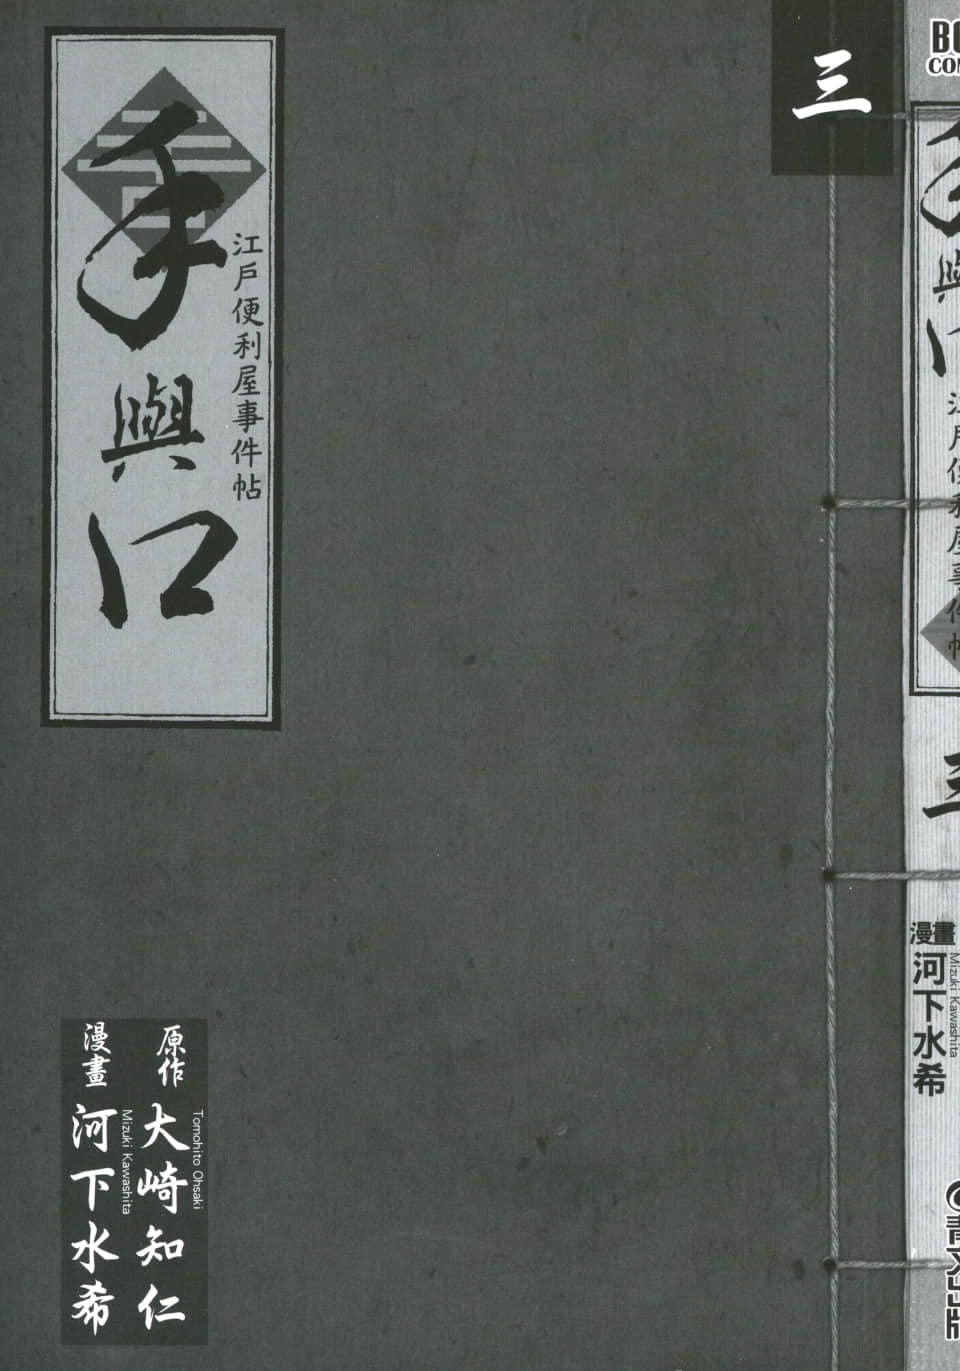 三
手與口
江戶便利屋事件帖
原作
大崎知仁
Tomohito Ohsaki
漫畫
河下水希
Mizuki Kawashita
手與口
江戶便利屋事件帖
三
漫畫
河下水希
Mizuki Kawashita
青文出版